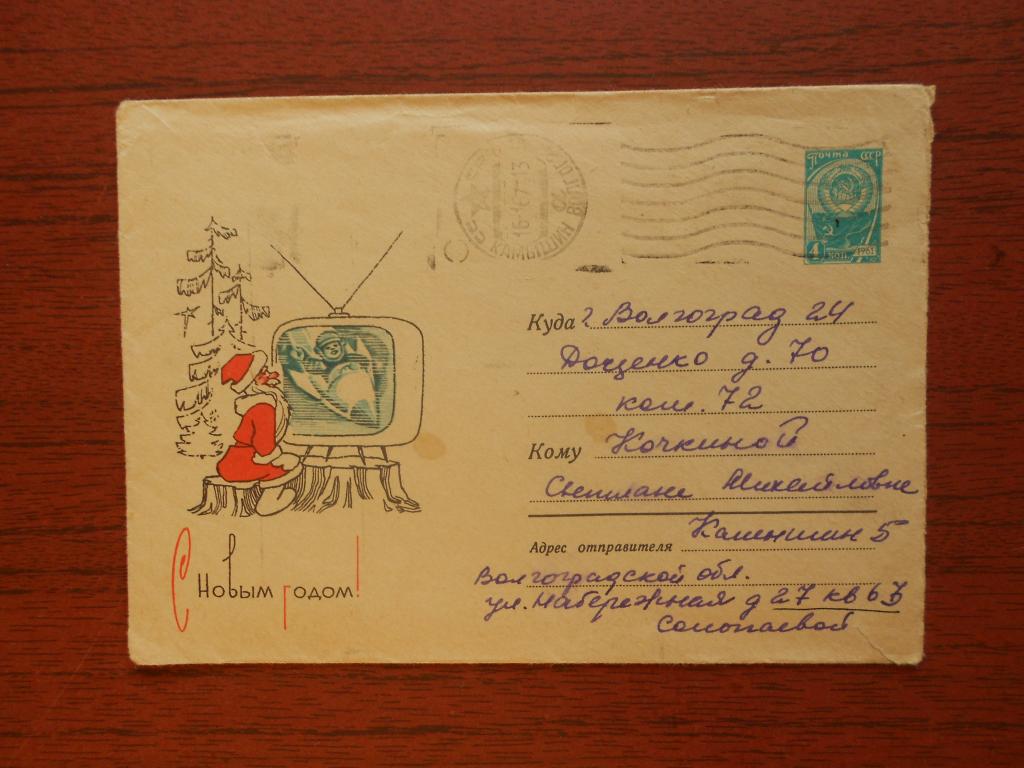 Почта СССР
4 коп. 1961
КАМЫШИН
Куда г. Волгоград 24
Доценко д. 70
ком. 72
Кому Кочкиной
Светлане Михайловне
Адрес отправителя Камышин 5
Волгоградской обл.
ул. Набережная д 27 кв 63
С Новым годом!